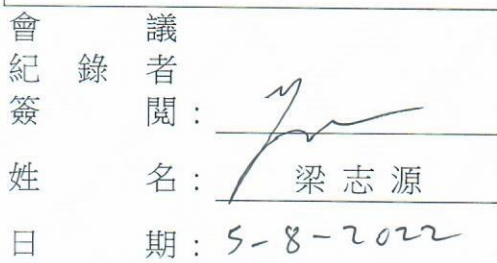 會議
紀錄者
簽閱：
姓名：梁志源
日期：5-8-2022